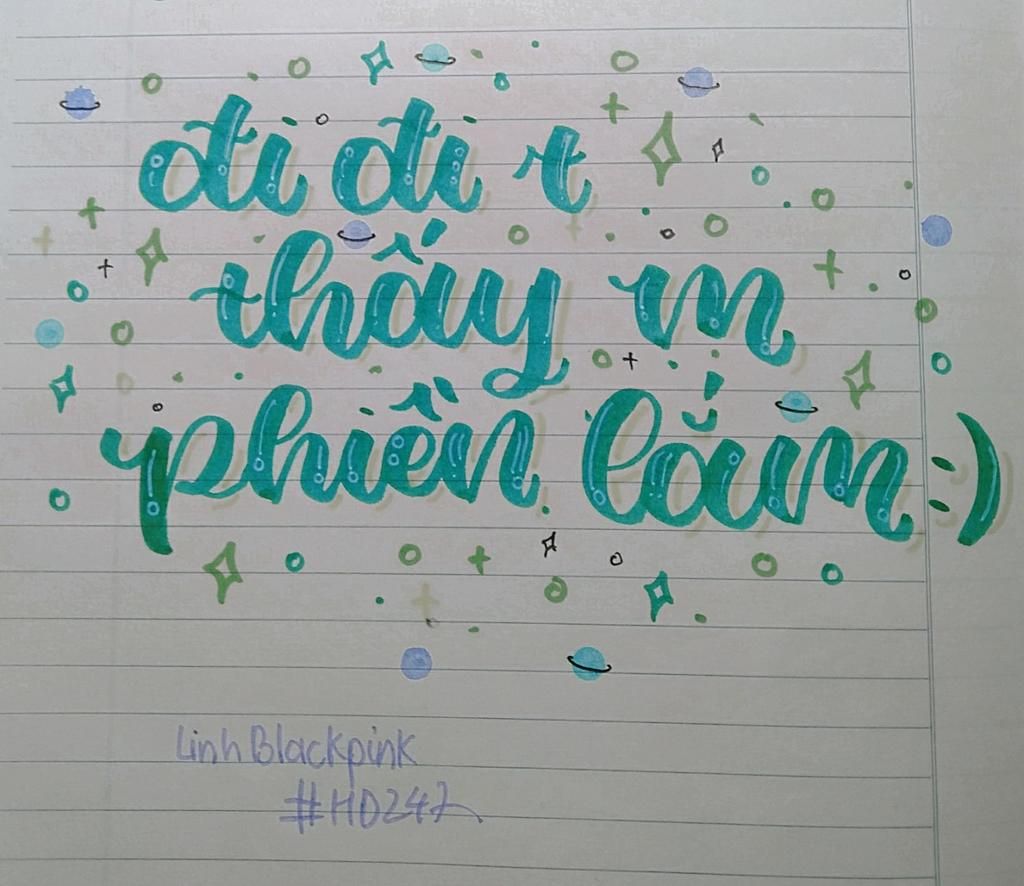 đi đi t
thấy m
phiền lắm :)
Linh Blackpink
#HD247